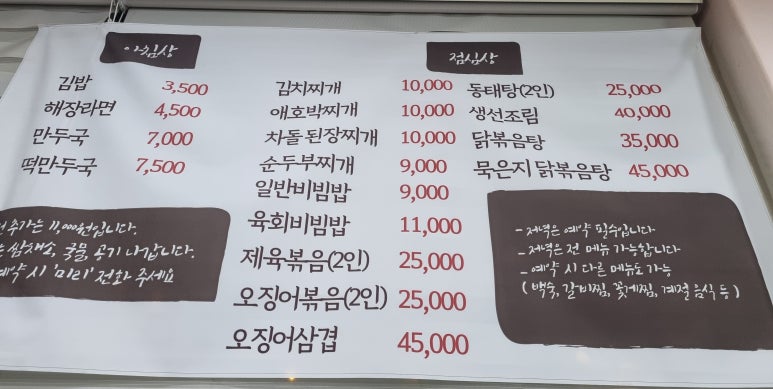 아침상
김밥 3,500
해장라면 4,500
만두국 7,000
떡만두국 7,500
추가는 11,000원입니다.
쌈채소, 국물, 공기 나갑니다.
예약 시 '미리' 전화 주세요
점심상
김치찌개 10,000
애호박찌개 10,000
차돌된장찌개 10,000
순두부찌개 9,000
일반비빔밥 9,000
육회비빔밥 11,000
제육볶음(2인) 25,000
오징어볶음(2인) 25,000
오징어삼겹 45,000
동태탕(2인) 25,000
생선조림 40,000
닭볶음탕 35,000
묵은지 닭볶음탕 45,000
- 저녁은 예약 필수입니다
- 저녁은 전 메뉴 가능합니다
- 예약 시 다른 메뉴도 가능
(백숙, 갈비찜, 꽃게찜, 계절 음식 등)